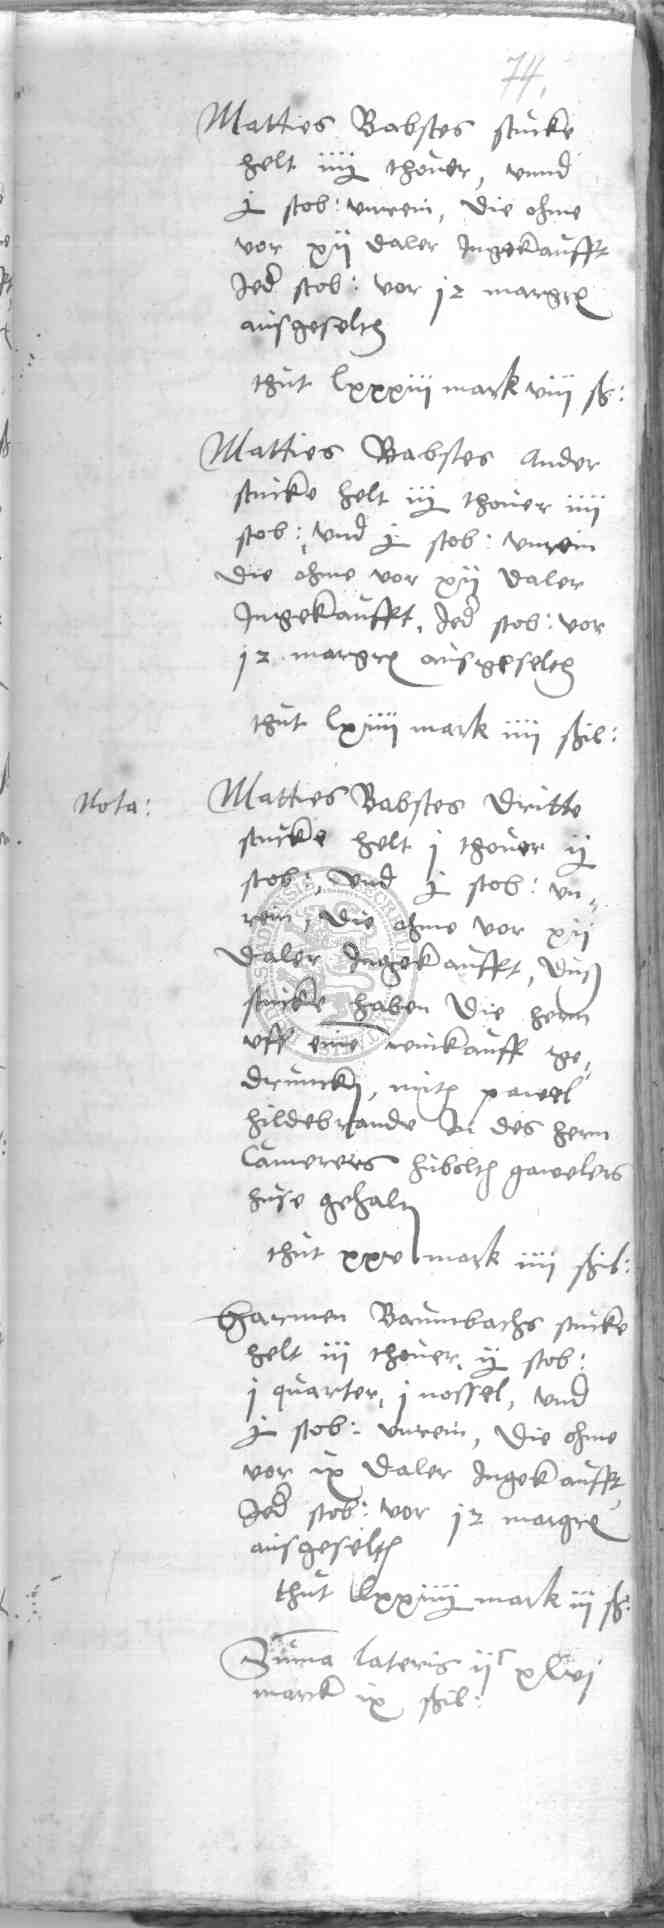 74.
Matties Babstes stucke
helt iiij thover, vnnd
j stob: vnrein, die ohme
vor xij daler Ingekaufft
Jed stob: vor 12 margr
ausgeselt
thut lxxxiii mark viii ß:
Matties Babstes Ander
stucke helt iij thover iiii
stob:, vnd j stob: vnrein
die ohme vor xij daler
Ingekaufft, Jed stob: vor
12 margr ausgeselt
thut lxiiii mark iiii ßil:
Nota:
Matties Babstes dritte
stucke helt j thover ij
stob:, vnd j stob: vn-
rein, die ohme vor xij
daler Ingekaufft, dut
stucke haben die hern
vff eine weinkauff ge-
drunck, mit pawel
hildebrande In des hern
Camerers huboltz gawelers
huse gehalt
thut xxv mark iiii ßil:
Harmen Baumbachs stucke
helt iii thover, ij stob:
j quarter, j nossel, vnd
j stob: vnrein, die ohme
vor ix daler Ingekaufft
Jed stob: vor 12 margr
ausgeselt
thut lxxiiii mark iii ß:
Suma lateris ijc xlvj
marck ix ßil: